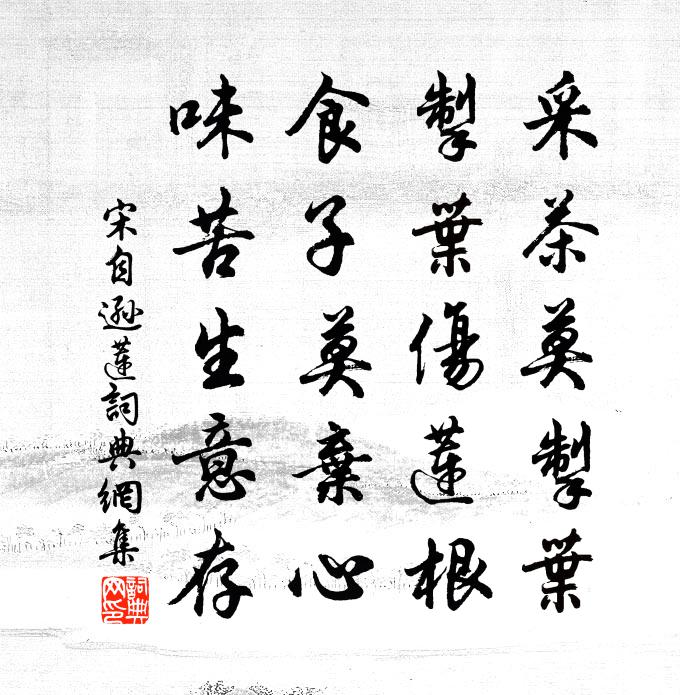 采茶莫掣葉
掣葉傷蓮根
食子莫棄心
味苦生意存
宋自遜蓮詞典網集
詞典
网印